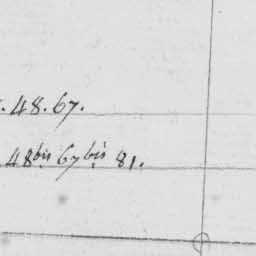 . 48. 67.
48bis 67bis 81.